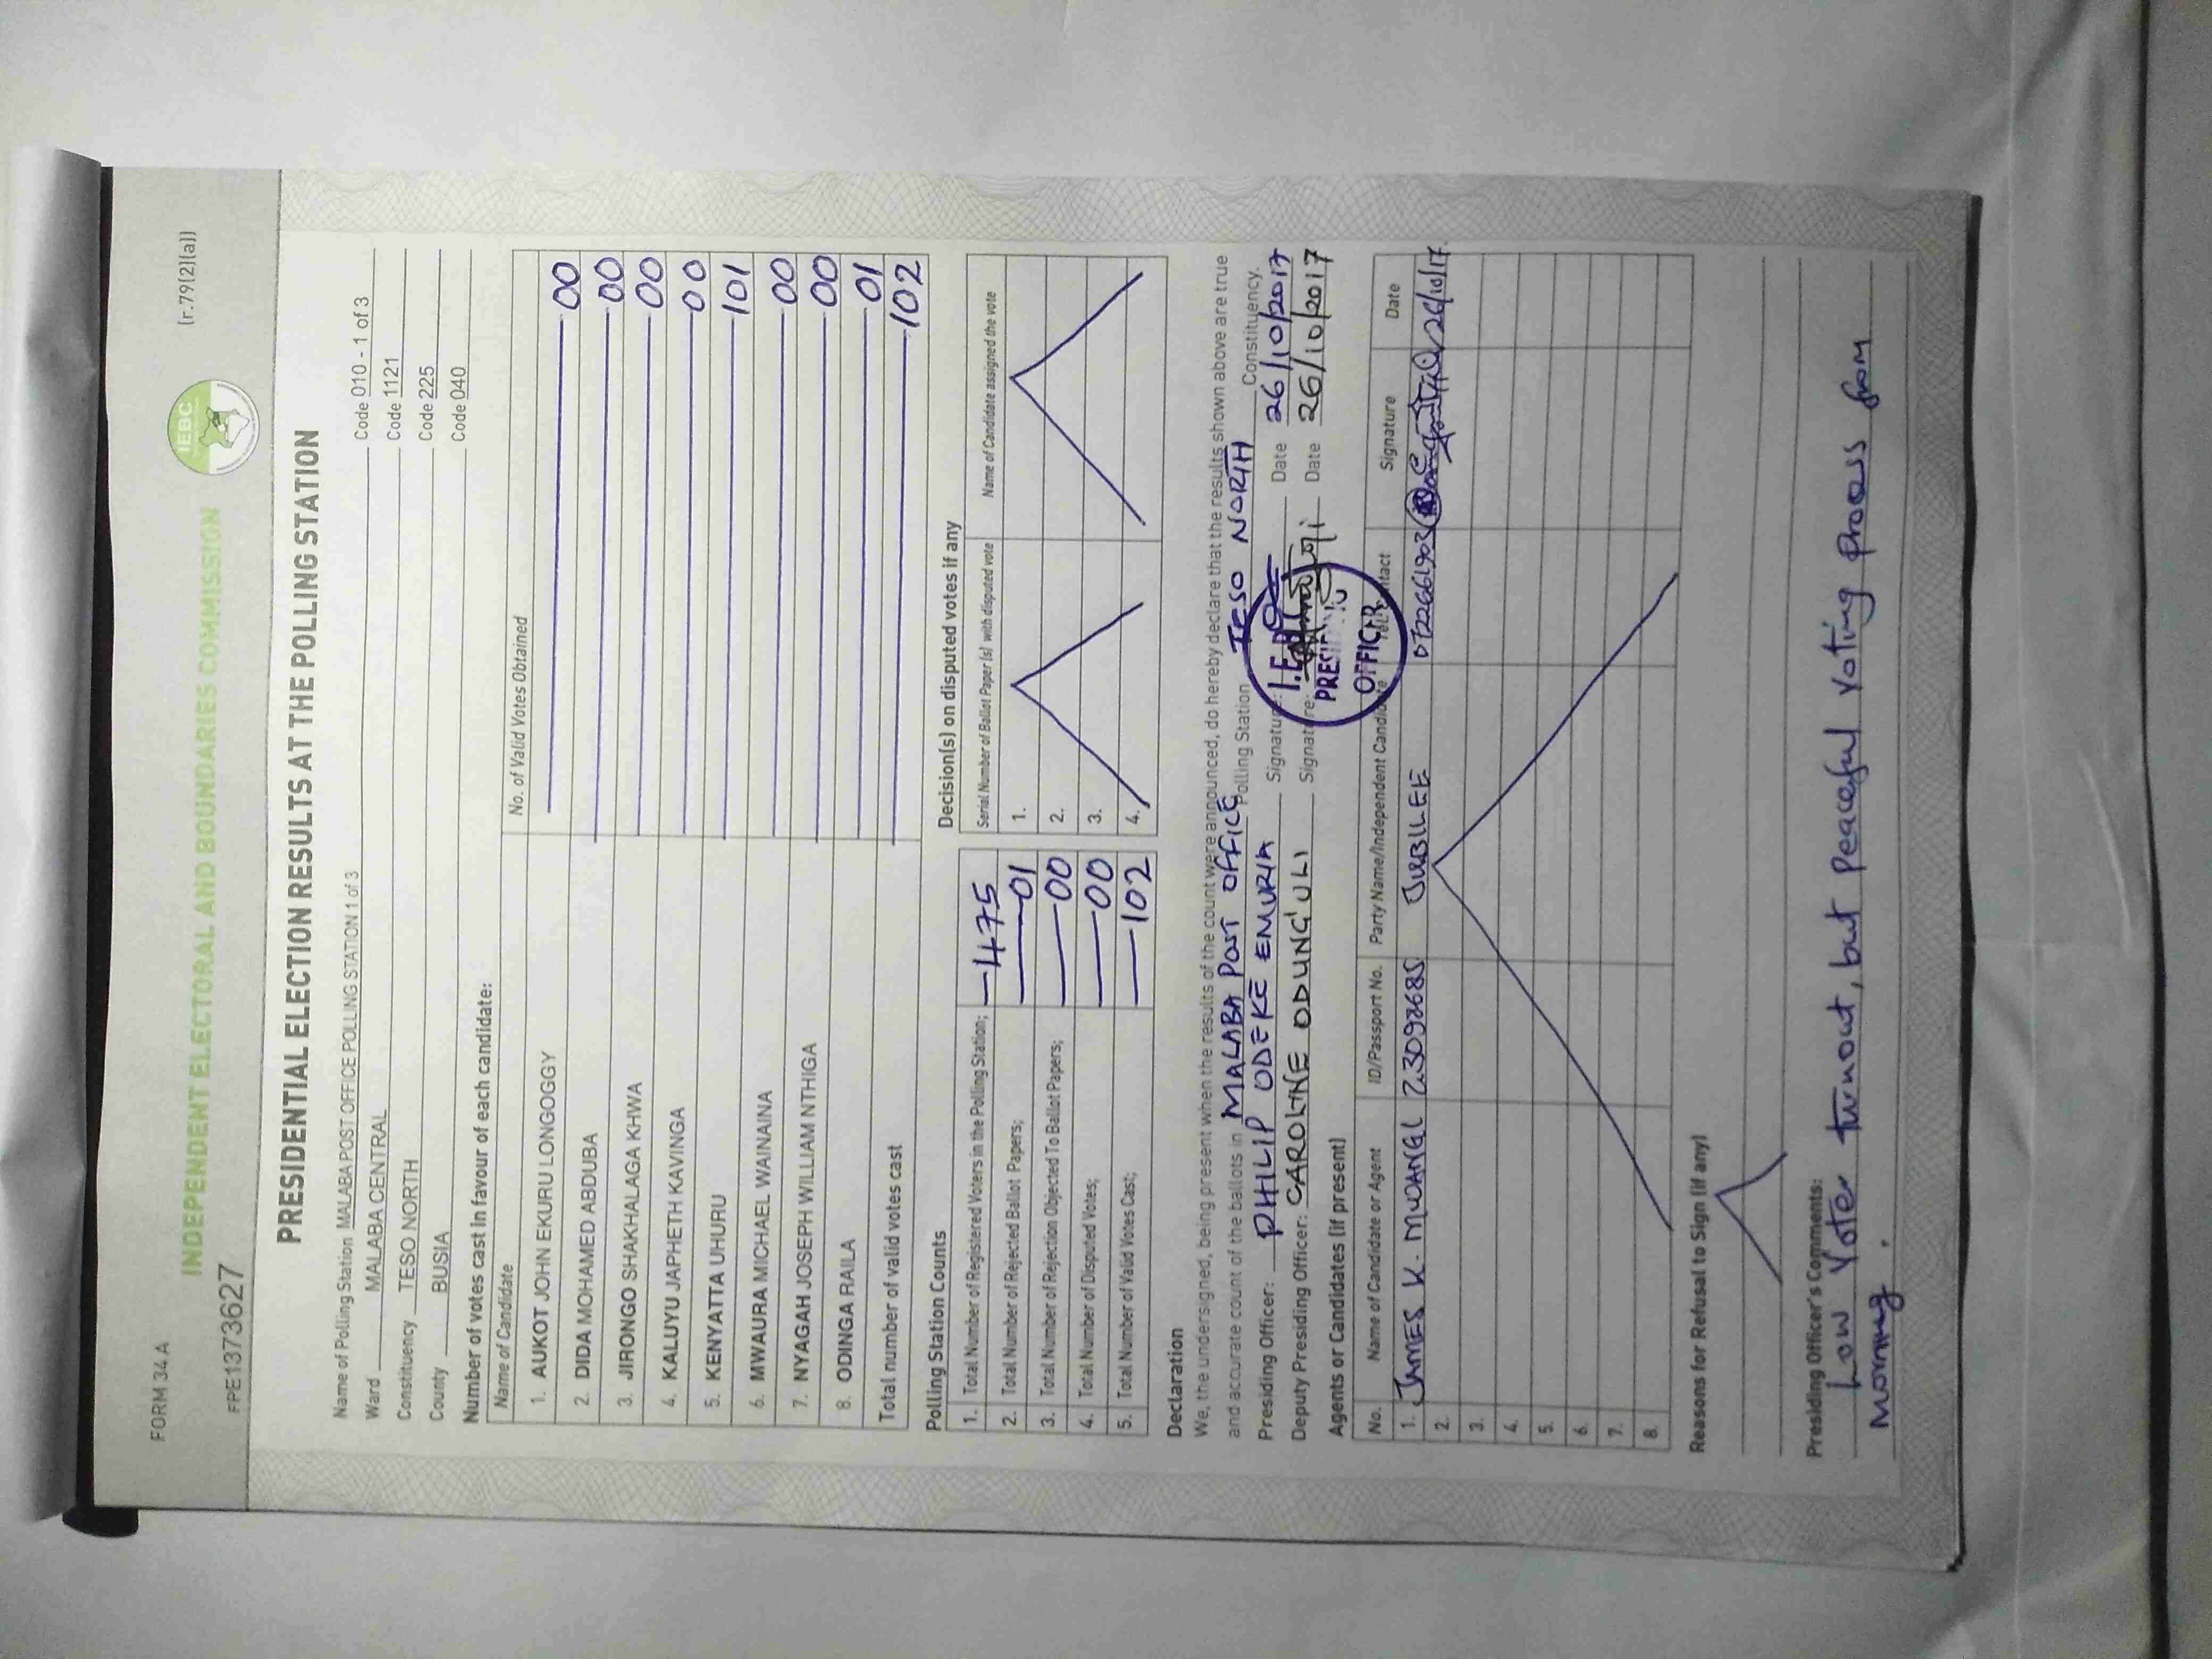 FORM 34 A
(r.79(2)(a))
INDEPENDENT ELECTORAL AND BOUNDARIES COMMISSION
IEBC
FPE1373627
PRESIDENTIAL ELECTION RESULTS AT THE POLLING STATION
Name of Polling Station MALABA POST OFFICE POLLING STATION 1 of 3 Code 010 - 1 of 3
Ward MALABA CENTRAL Code 1121
Constituency TESO NORTH Code 225
County BUSIA Code 040
Number of votes cast in favour of each candidate:
Name of Candidate No. of Valid Votes Obtained
1. AUKOT JOHN EKURU LONGOGGY 00
2. DIDA MOHAMED ABDUBA 00
3. JIRONGO SHAKHALAGA KHWA 00
4. KALUYU JAPHETH KAVINGA 00
5. KENYATTA UHURU 101
6. MWAURA MICHAEL WAINAINA 00
7. NYAGAH JOSEPH WILLIAM NTHIGA 00
8. ODINGA RAILA 01
Total number of valid votes cast 102
Polling Station Counts
1. Total Number of Registered Voters in the Polling Station; 475
2. Total Number of Rejected Ballot Papers; 01
3. Total Number of Rejection Objected To Ballot Papers; 00
4. Total Number of Disputed Votes; 00
5. Total Number of Valid Votes Cast; 102
Decision(s) on disputed votes if any
Serial Number of Ballot Paper (s) with disputed vote Name of Candidate assigned the vote
1.
2.
3.
4.
Declaration
We, the undersigned, being present when the results of the count were announced, do hereby declare that the results shown above are true
and accurate count of the ballots in MALABA POST OFFICE Polling Station TESO NORTH Constituency.
Presiding Officer: PHILIP ODEKE EMURIA Signature: Date 26/10/2017
Deputy Presiding Officer: CAROLINE ODUNG'ULI Signature: Date 26/10/2017
PRESIDING
OFFICER
Agents or Candidates (if present)
No. Name of Candidate or Agent ID/Passport No. Party Name/Independent Candidate Tel. Contact Signature Date
1. JAMES K. MWANGI 23092685 JUBILEE 0722661903 26/10/17
2.
3.
4.
5.
6.
7.
8.
Reasons for Refusal to Sign (if any)
Presiding Officer's Comments:
Low Voter turnout, but peaceful voting process from
morning.